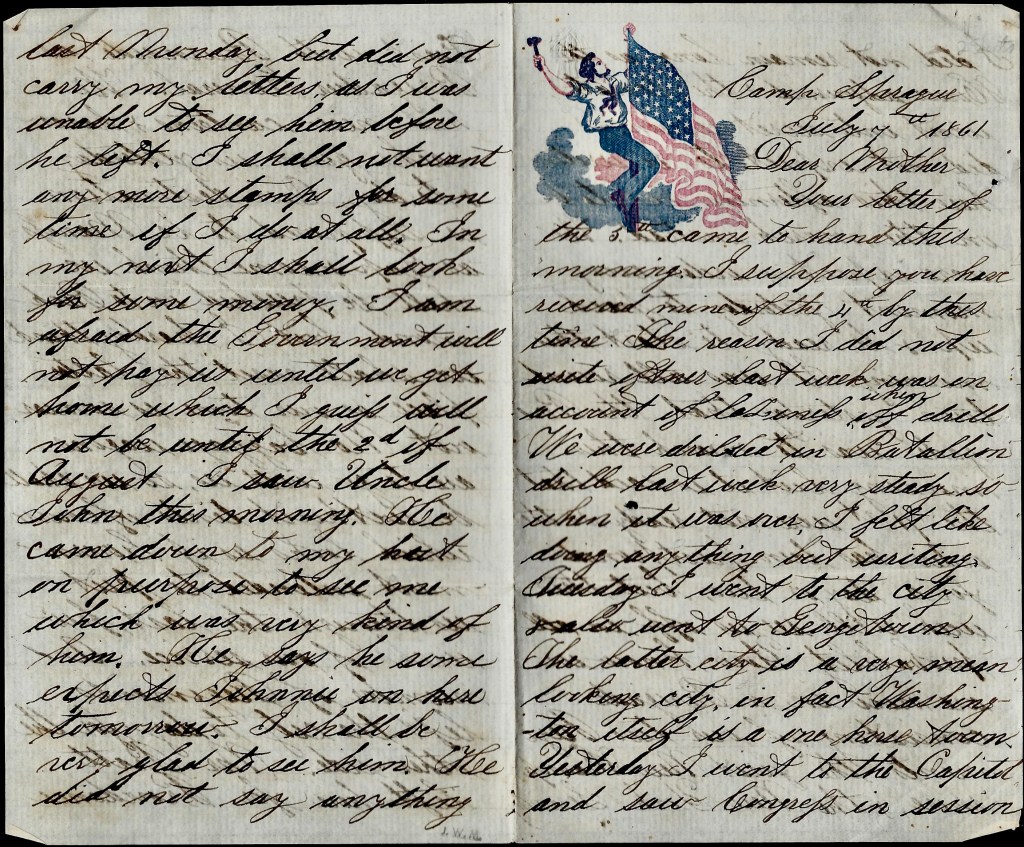 last Monday but did not
carry my letters, as I was
unable to see him before
he left. I shall not want
any more stamps for some
time if I do at all. In
my next I shall look
for some money. I am
afraid the Government will
not pay us until we get
home which I guess will
not be until the 2d of
August. I saw Uncle
John this morning. He
came down to my hut
on purpose to see me
which was very kind of
him. He says he some
expects Johnnie on here
tomorrow. I shall be
very glad to see him. He
did not say anything
Camp Sprague
July 7th 1861
Dear Mother
Your letter of
the 5th came to hand this
morning. I suppose you have
received mine of the 4th by this
time. The reason I did not
write oftner last week was on
account of laziness when off drill
We were drilled in Batallion
drill last week very steady so
when it was over, I felt like
doing anything but writing.
Tuesday I went to the city
& also went to Georgetown.
The latter city is a very mean
looking city, in fact Washing-
-ton itself is a one horse town.
Yesterday I went to the Capitol
and saw Congress in session